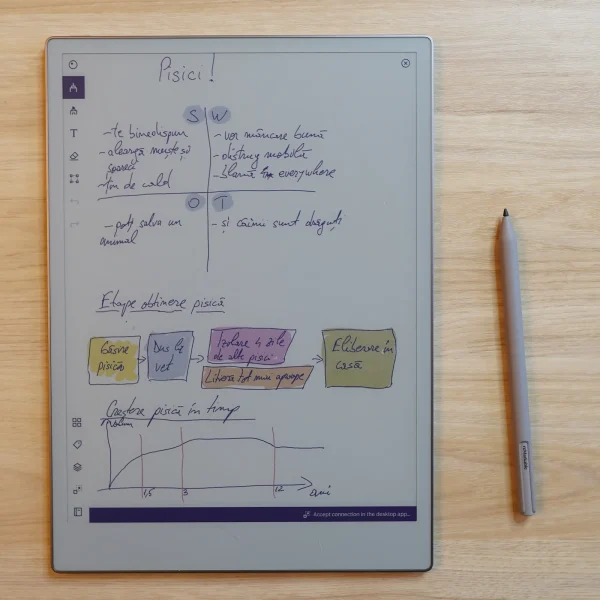 Pisici!
S
W
- te binedispun
- aleargă muște și
șoareci
- țin de cald
- vor mâncare bună
- distrug mobila
- blană everywhere
O
T
- poți salva un
animal
- și câinii sunt drăguți
Etape obținere pisică
Găsire
pisică
Dus la
vet
Izolare 4 zile
de alte pisici
Litieră tot mai aproape
Eliberare în
casă
Creștere pisică în timp
1,5
3
12
ani
Accept connection in the desktop app...